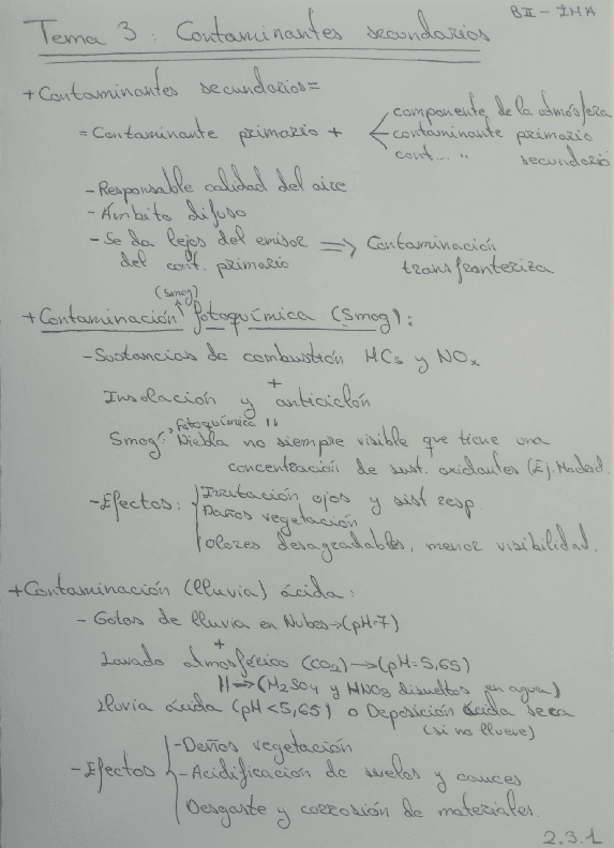 BII - IMA
Tema 3: Contaminantes secundarios
+Contaminantes secundarios=
= Contaminante primario +
componente de la atmósfera
contaminante primario
cont... " secundario
-Responsable calidad del aire
-Ámbito difuso
-Se da lejos del emisor => Contaminación
del cont. primario transfronteriza
(smog)
+Contaminación fotoquímica (Smog):
-Sustancias de combustión HCs y NOx
+
Insolación y anticiclón
fotoquímica
Smog: Niebla no siempre visible que tiene una
concentración de sust. oxidantes (Ej. Madrid.
-Efectos: Irritación ojos y sist resp.
Daños vegetación
Olores desagradables, menor visibilidad.
+Contaminación (lluvia) ácida:
- Gotas de lluvia en Nubes->(pH=7)
+
Lavado atmosférico (CO2)->(pH=5,65)
(H2SO4 y HNO3 disueltos en agua)
Lluvia ácida (pH<5,65) o Deposición ácida seca
(si no llueve)
-Efectos
-Daños vegetación
-Acidificación de suelos y cauces
Desgaste y corrosión de materiales.
2.3.1